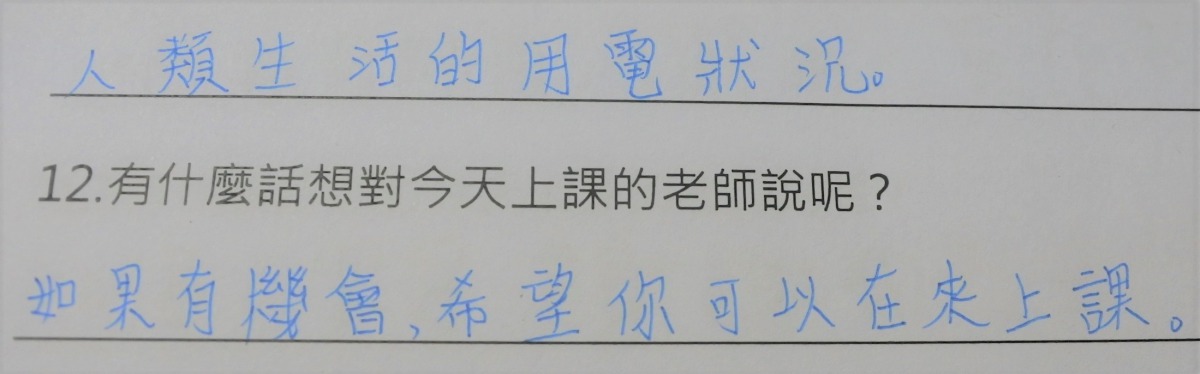 人類生活的用電狀況。
12.有什麼話想對今天上課的老師說呢？
如果有機會,希望你可以在來上課。